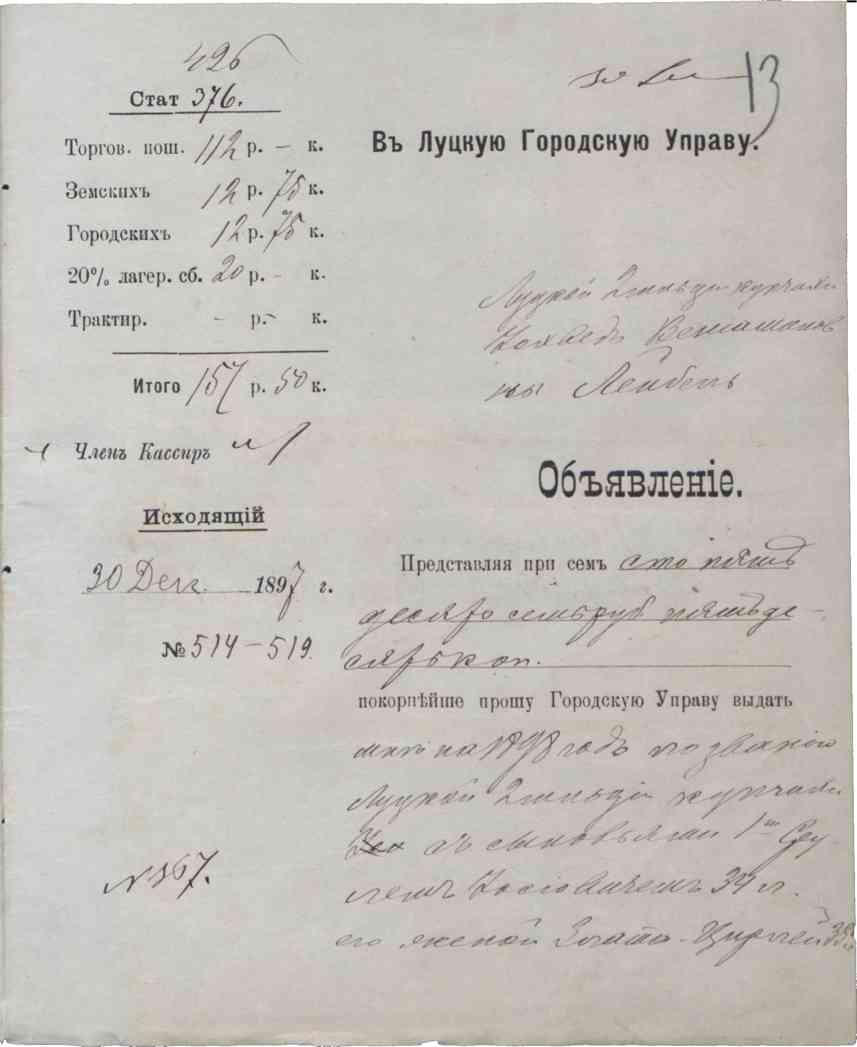 426
13
Стат 376.
Торгов. пош. 112 р. – к.
Земскихъ 12 р. 75 к.
Городскихъ 12 р. 75 к.
20% лагер. сб. 20 р. - к.
Трактир. - р. - к.
Итого 157 р. 50 к.
Членъ Кассиръ
Исходящій
30 Дек. 1897 г.
№ 514-519.
N 367.
Въ Луцкую Городскую Управу.
Луцкой 2 гильдіи купчихи
Вениаминов
ны Лейбель
Объявленіе.
Представляя при семъ сто пять
десятъ семь руб пятьде-
сятъ коп.
покорнѣйше прошу Городскую Управу выдать
мнѣ на 1898 годъ по званію
Луцкой 2 гильдіи купчихи
съ сыновьями 1м
34 л.
его женой Злата-